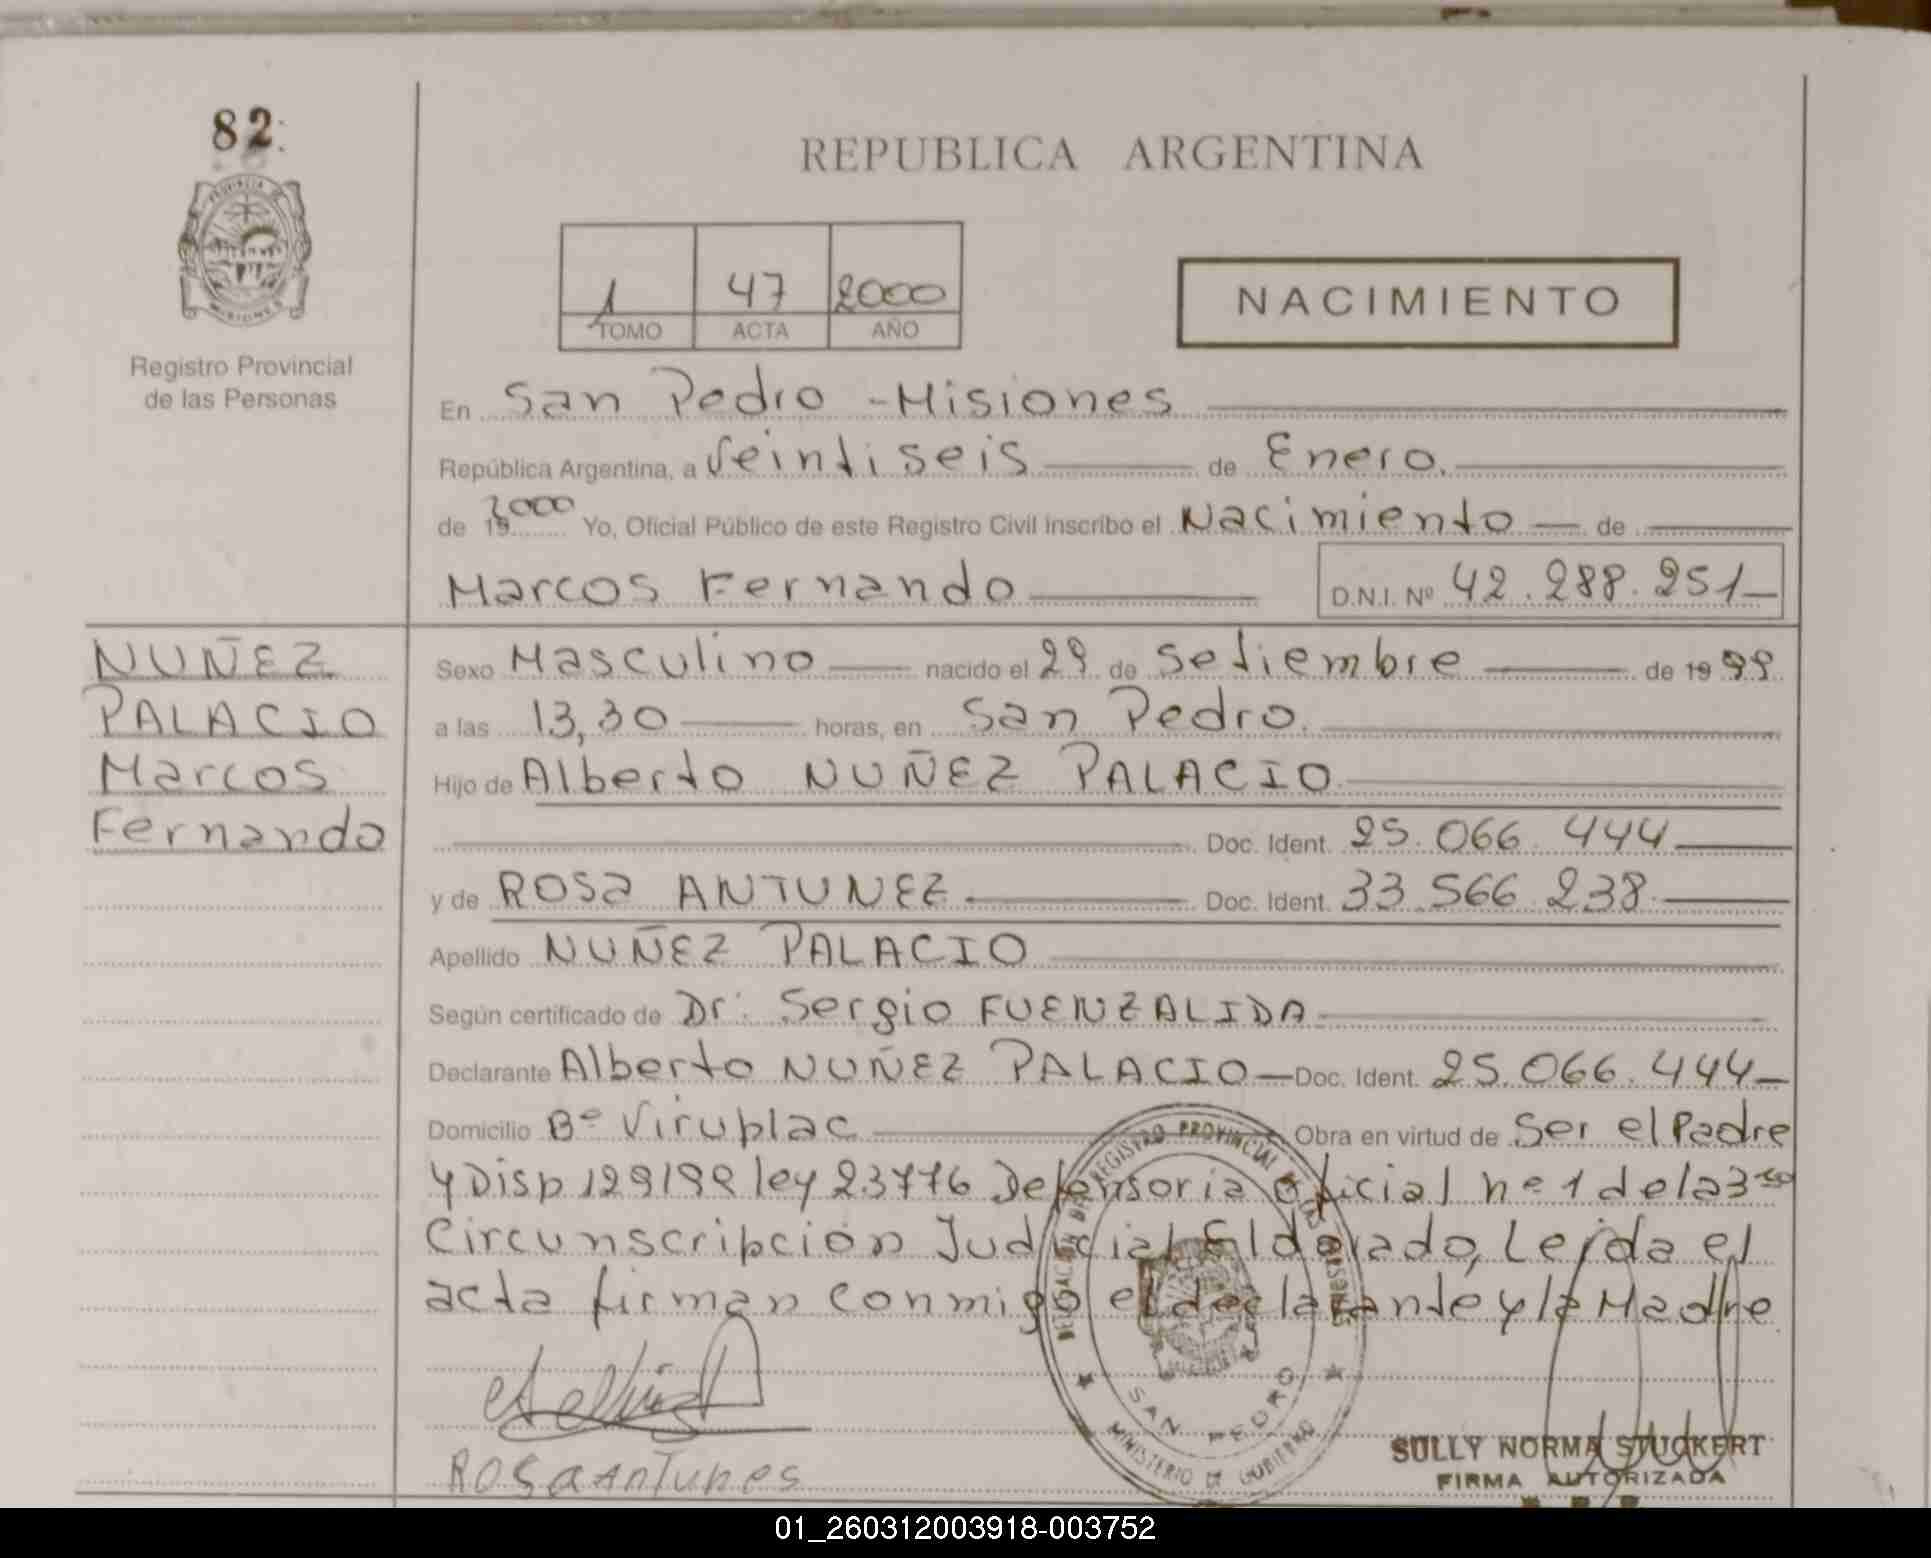 82
REPUBLICA ARGENTINA
PROVINCIA DE
MISIONES
1 47 2000
TOMO ACTA AÑO
NACIMIENTO
Registro Provincial
de las Personas
En San Pedro - Misiones
República Argentina, a veintiseis de Enero.
de 19 2000 Yo, Oficial Público de este Registro Civil inscribo el Nacimiento de
Marcos Fernando D.N.I. Nº 42.288.251
NUÑEZ
PALACIO
Marcos
Fernando
Sexo Masculino nacido el 29 de Setiembre de 1999
a las 13,30 horas, en San Pedro.
Hijo de Alberto NUÑEZ PALACIO
Doc. Ident. 25.066.444
y de ROSA ANTUNEZ Doc. Ident. 33.566.238
Apellido NUÑEZ PALACIO
Según certificado de Dr: Sergio FUENZALIDA
Declarante Alberto NUÑEZ PALACIO Doc. Ident. 25.066.444
Domicilio Bº Viruplac Obra en virtud de Ser el Padre
y Disp 129/99 ley 23776 Defensoria Oficial nº 1 de la 3ra
Circunscripción Judicial Eldorado, Leída el
acta firman conmigo el declarante y la Madre
DELEGACION DEL REGISTRO PROVINCIAL DE LAS PERSONAS
SAN PEDRO
MINISTERIO DE GOBIERNO
Rosa Antunes
SULLY NORMA STUCKERT
FIRMA AUTORIZADA
01_260312003918-003752